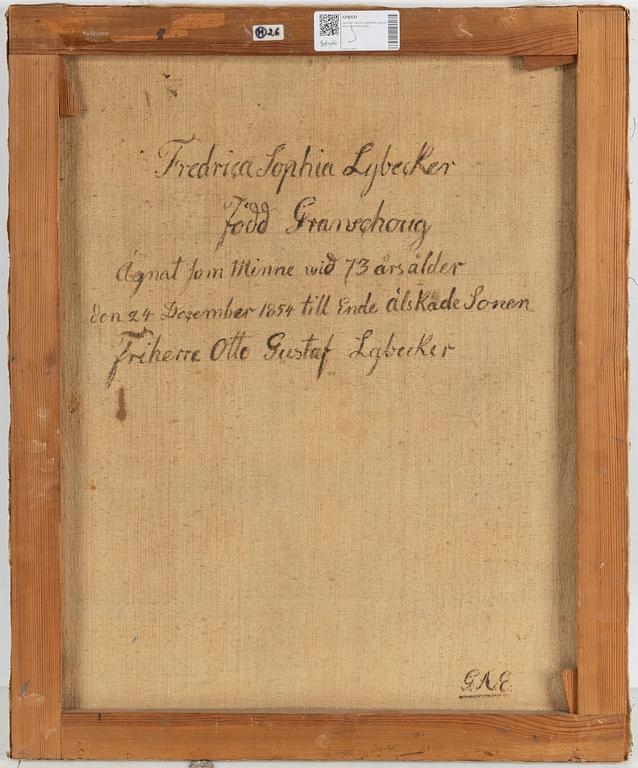 M 26
1216531
Fredrica Sophia Lybecker
Född Granschoug
Ägnat som Minne wid 73 års ålder
den 24 December 1854 till Ende älskade Sonen
Friherre Otto Gustaf Lybecker
G.A.E.